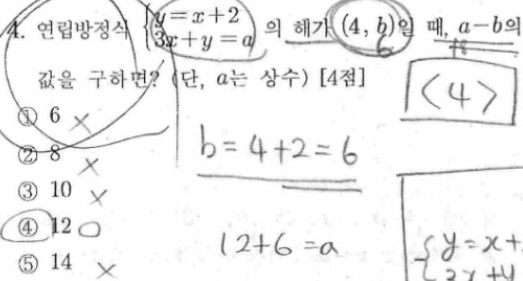 4. 연립방정식 { y=x+2
3x+y=a 의 해가 (4, b)일 때, a-b의
6 18
값을 구하면? (단, a는 상수) [4점]
<4>
① 6 ×
② 8 ×
③ 10 ×
④ 12 ○
⑤ 14 ×
b=4+2=6
12+6=a
{ y=x+
3x+y